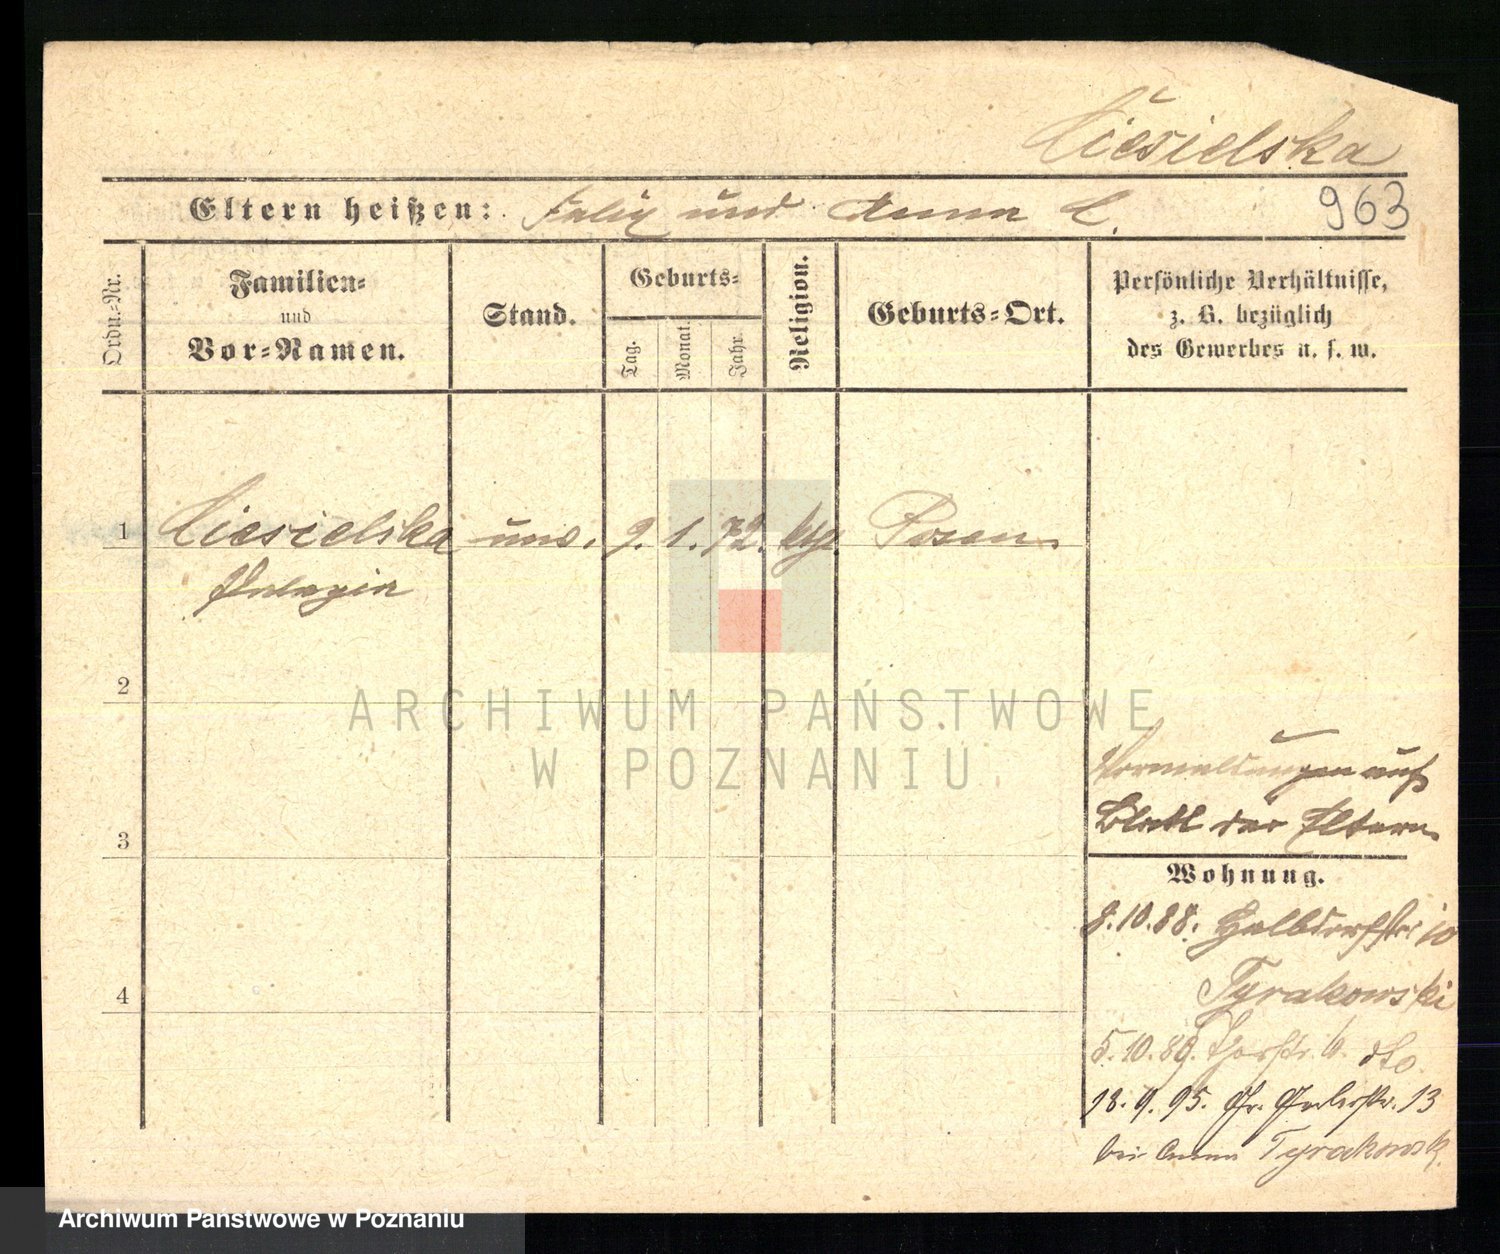 Ciesielska
Eltern heißen: Felix und Anna C.
963
Ordn.-Nr.
Familien-
und
Vor-Namen.
Stand.
Geburts-
Tag.
Monat.
Jahr.
Religion.
Geburts-Ort.
Persönliche Verhältnisse,
z. B. bezüglich
des Gewerbes u. s. w.
1
Ciesielska unv. 9. 1. 72. kth. Posen
Pelagia
2
ARCHIWUM PAŃSTWOWE
W POZNANIU
Vormeldungen auf
Blatt der Eltern
3
Wohnung.
8.10.88. Halbdorfstr 10
Tyrakowski
4
5.10.89. 6. dto.
18.9.95. Gr. Gerberstr. 13
bei Anna Tyrakowsk
Archiwum Państwowe w Poznaniu